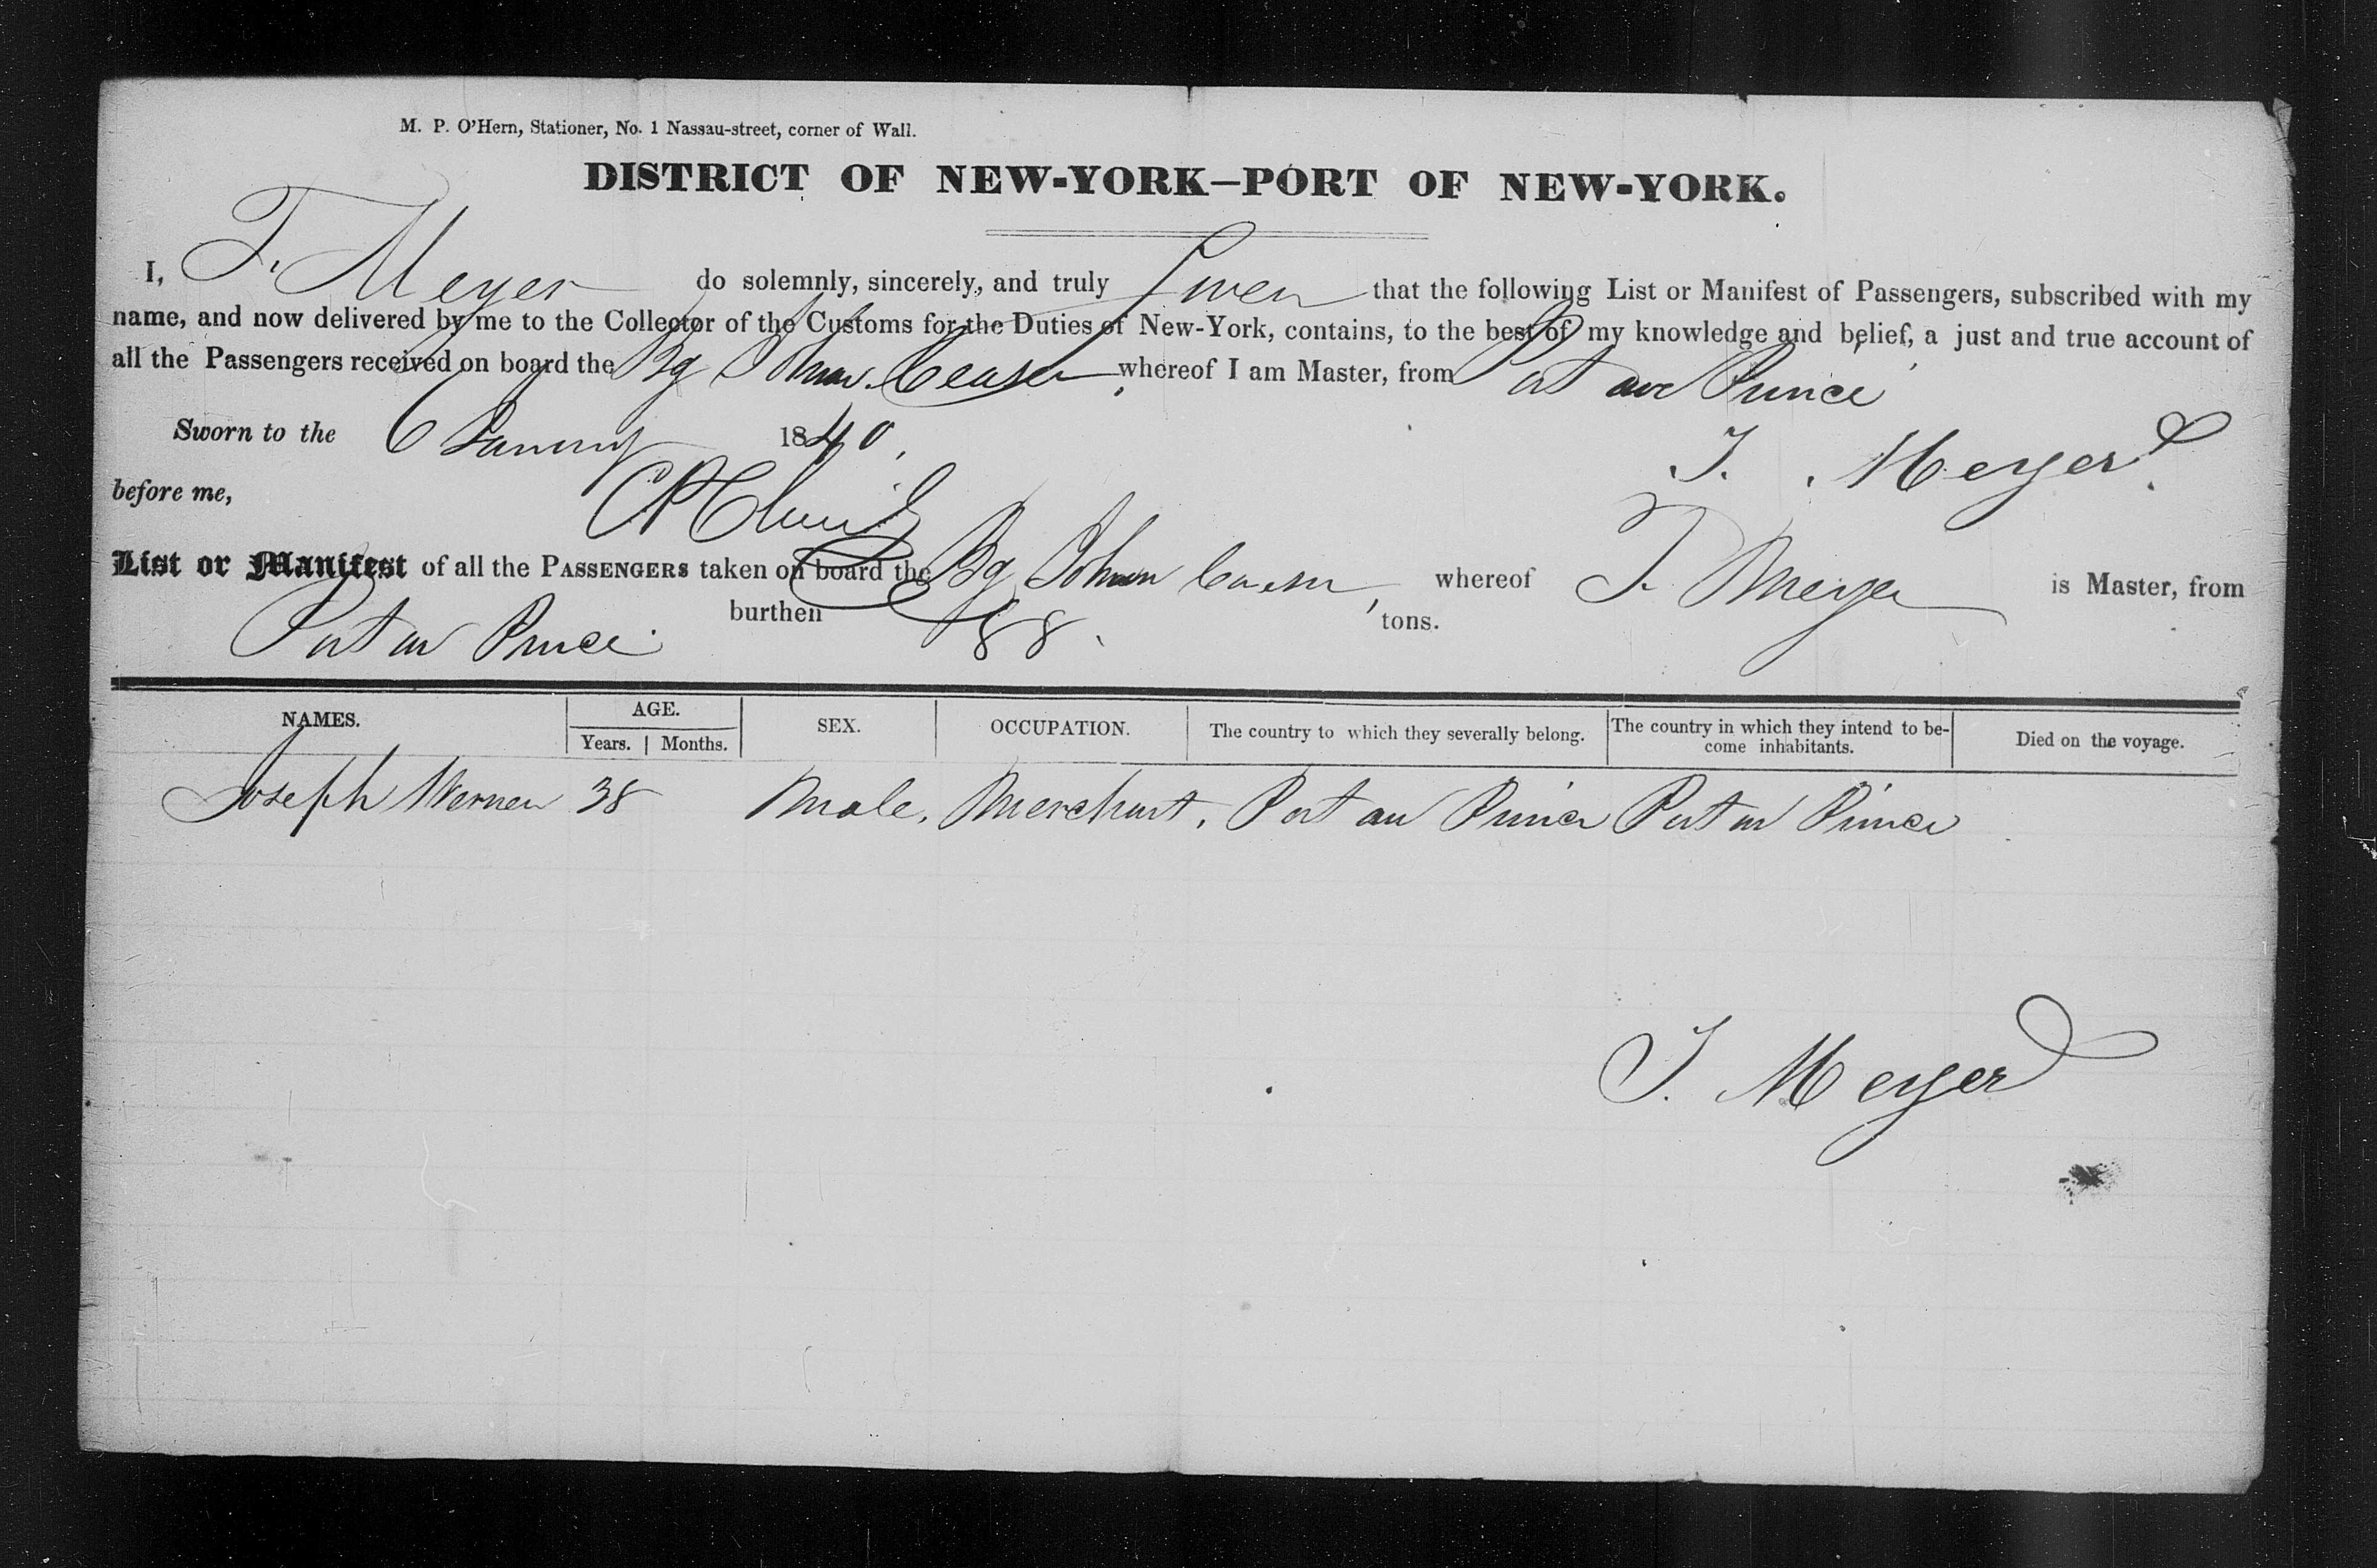 M. P. O'Hern, Stationer, No. 1 Nassau-street, corner of Wall.
DISTRICT OF NEW-YORK—PORT OF NEW-YORK.
I, T. Meyer do solemnly, sincerely, and truly Swear that the following List or Manifest of Passengers, subscribed with my
name, and now delivered by me to the Collector of the Customs for the Duties of New-York, contains, to the best of my knowledge and belief, a just and true account of
all the Passengers received on board the Bg Johan whereof I am Master, from Port au Prince
Sworn to the 6 January 1840.
T. Meyer
before me,
List or Manifest of all the PASSENGERS taken on board the Bg Johan , whereof T. Meyer is Master, from
Port au Prince burthen 88 tons.
NAMES. AGE. Years. Months. SEX. OCCUPATION. The country to which they severally belong. The country in which they intend to be-come inhabitants. Died on the voyage.
Joseph Werner 38 Male. Merchant. Port au Prince Port au Prince
T. Meyer